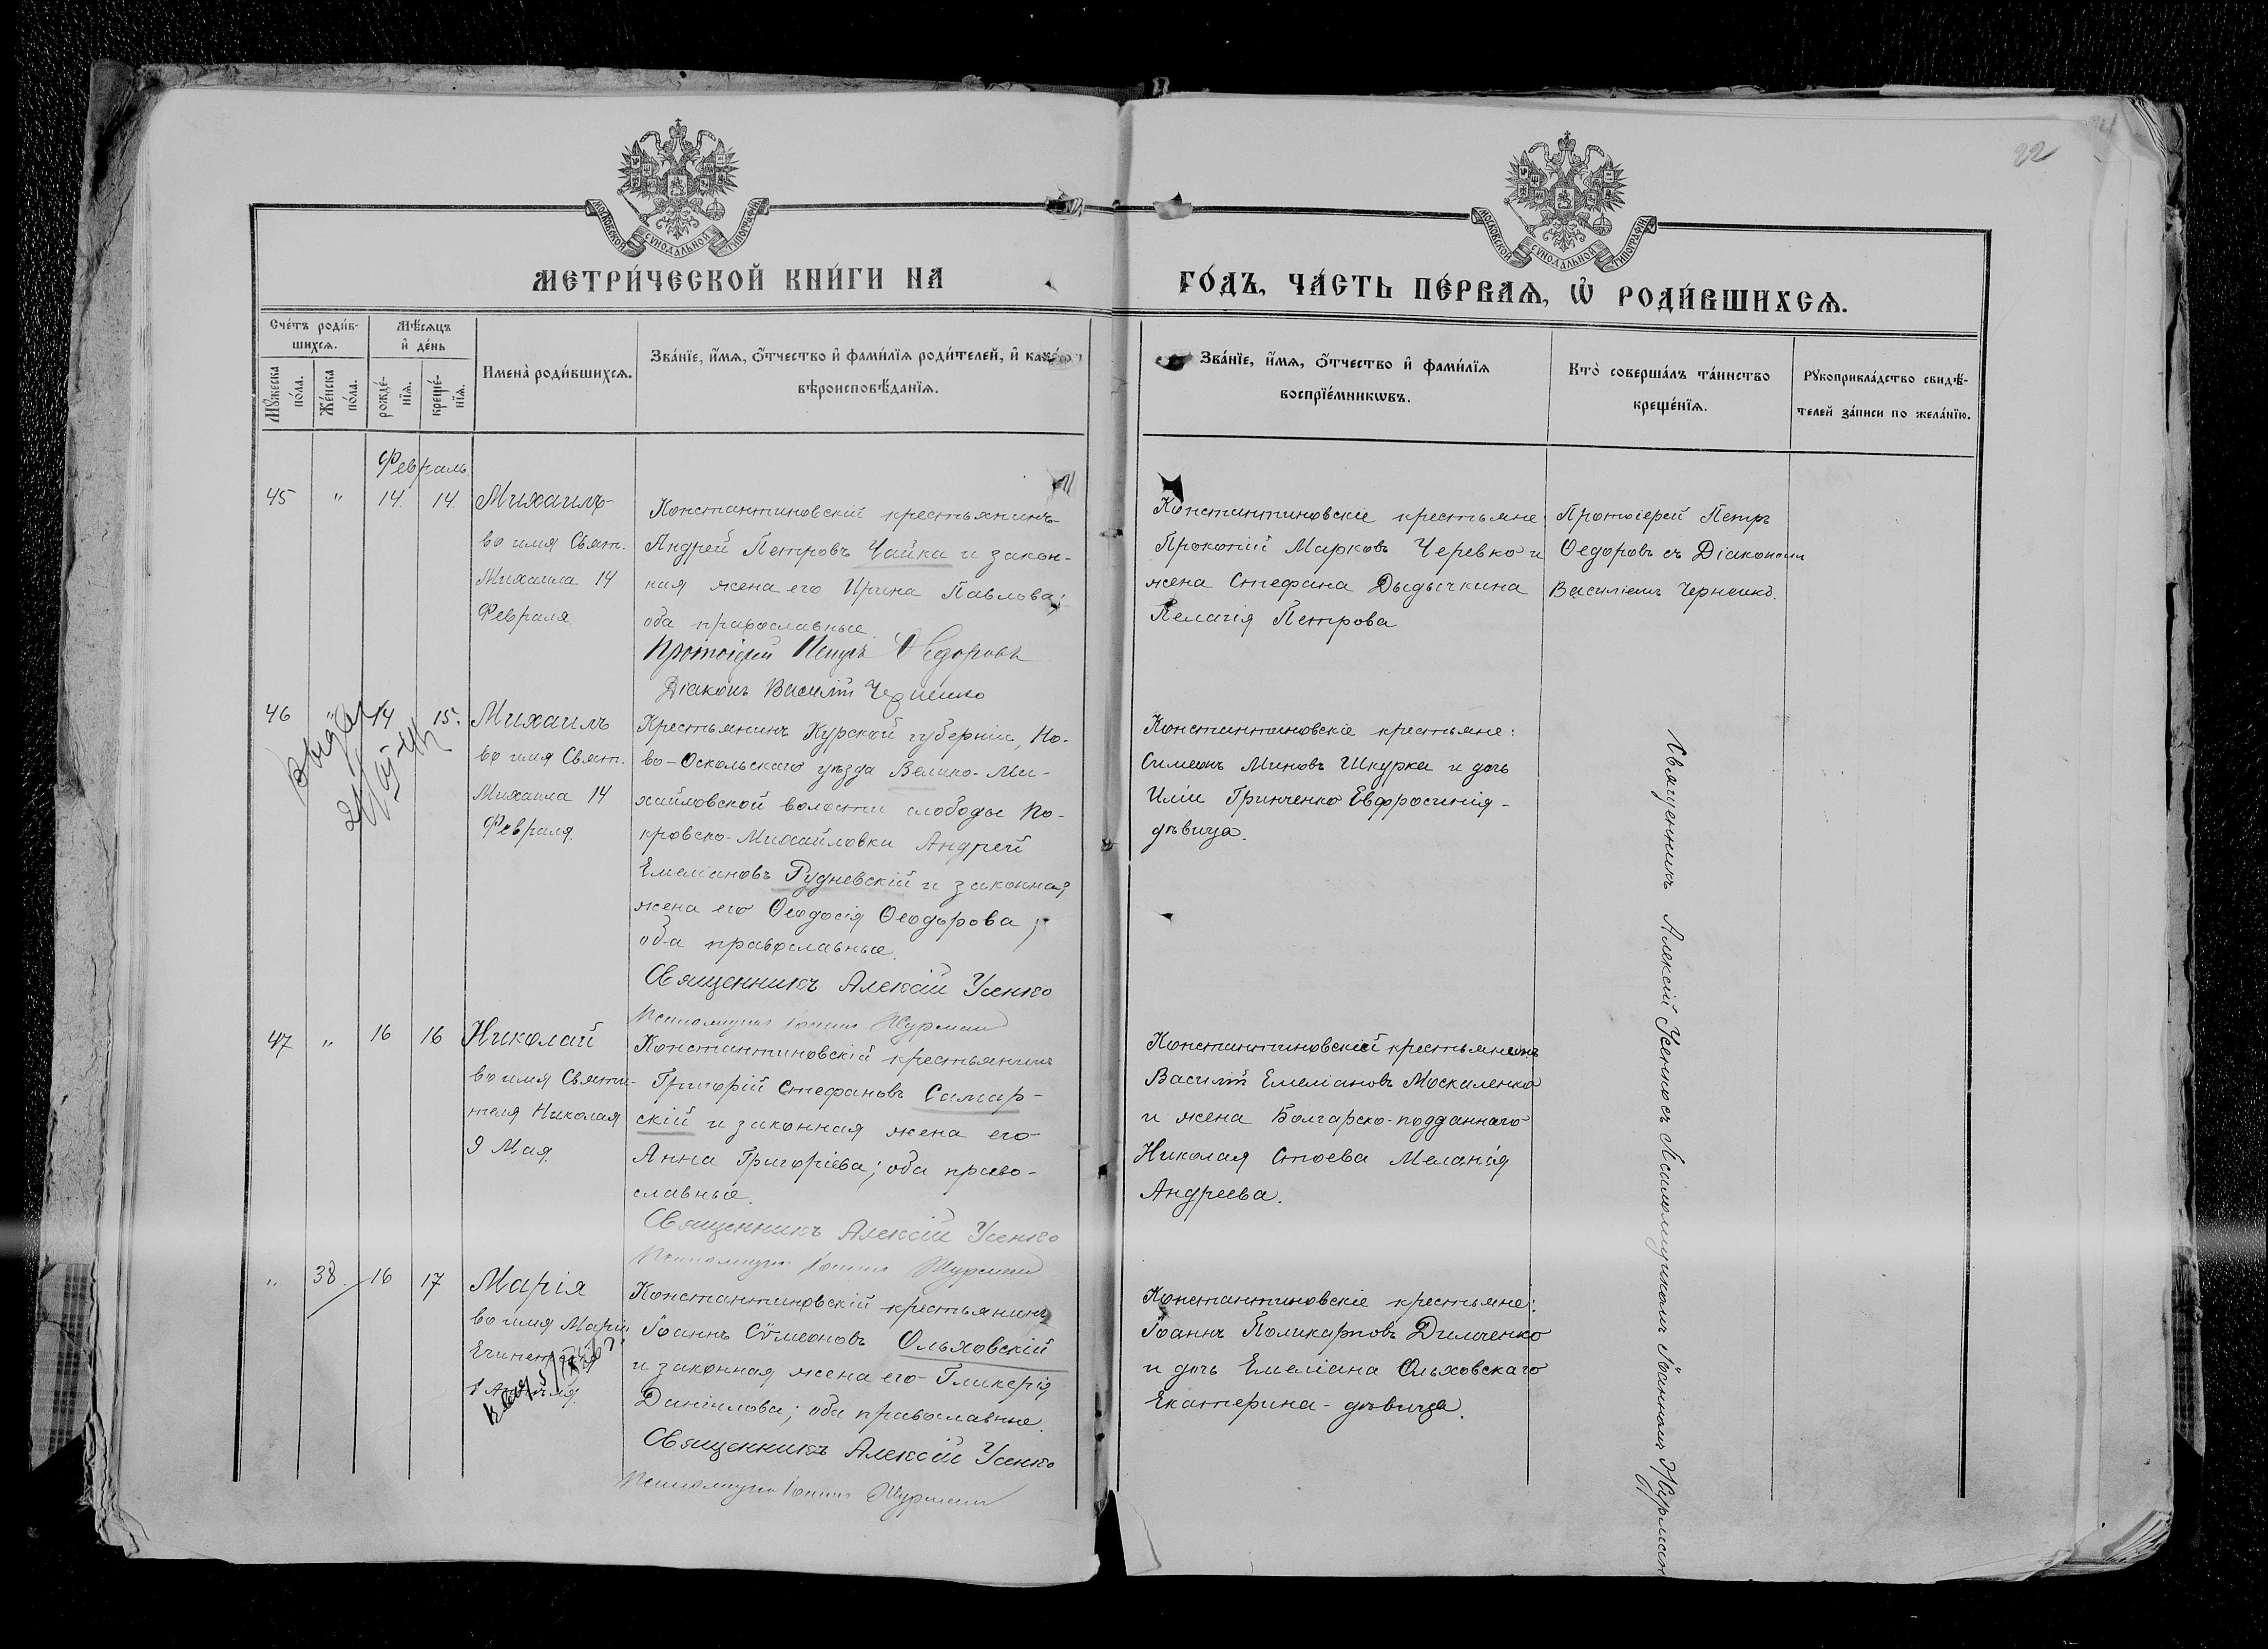 22
МОСКОВСКОЙ СѴНОДАЛЬНОЙ ТИПОГРАФІИ
МОСКОВСКОЙ СѴНОДАЛЬНОЙ ТИПОГРАФІИ
МЕТРИ́ЧЕСКОЙ КНИ́ГИ НА
ГО́ДЪ, ЧА́СТЬ ПЕ́РВАѦ, Ѡ РОДИ́ВШИХСѦ.
Сче́тъ роди́в-
шихсѧ.
Мѣ́сѧцъ
и҆ де́нь
Мꙋ́жеска
по́ла.
Же́нска
по́ла.
рожде́-
нїѧ.
креще́-
нїѧ.
И҆мена̀ роди́вшихсѧ.
Зва́нїе, и҆́мѧ, о҆́тчество и҆ фами́лїѧ роди́телей, и҆
вѣроисповѣ́данїѧ.
Зва́нїе, и҆́мѧ, о҆́тчество и҆ фами́лїѧ
воспрїе́мникѡвъ.
Кто̀ соверша́лъ та́инство
креще́нїѧ.
Рꙋкоприкла́дство свидѣ́-
телей за́писи по жела́нїю.
Февраль
45 " 14. 14. Михаилъ
во имя Свят.
Михаила 14
Февраля
Константиновскій крестьянинъ
Андрей Петровъ Чайка и закон-
ная жена его Ирина Павлова;
оба православные.
Протоіерей Петръ Ѳедоровъ
Діаконъ Василій Черненко
Константиновскіе крестьяне
Прокопій Марковъ Черевко и
жена Стефана Дыдычкина
Пелагія Петрова
Протоіерей Петръ
Ѳедоровъ съ Діакономъ
Василіемъ Черненко.
46 14 15. Михаилъ
во имя Свят.
Михаила 14
Февраля.
Крестьянинъ Курской губерніи, Но-
во-Оскольскаго уѣзда Велико-Ми-
хайловской волости слободы По-
кровско-Михайловки Андрей
Емеліановъ Рудневскій и законная
жена его Ѳеодосія Ѳеодорова;
оба православные.
Священникъ Алексій Усенко
Псаломщикъ Іоаннъ Журман
Константиновскіе крестьяне:
Симеонъ Миновъ Шкурка и дочь
Иліи Гринченко Евфросинія-
дѣвица.
Священникъ Алексій Усенко съ Псаломщикомъ Іоанномъ Журман
47 " 16 16 Николай
во имя Святи-
теля Николая
9 Мая.
Константиновскій крестьянинъ
Григорій Стефановъ Самар-
скій и законная жена его
Анна Григоріева; оба право-
славные.
Священникъ Алексій Усенко
Псаломщикъ Іоаннъ Журман
Константиновскій крестьянинъ
Василій Емеліановъ Москаленко
и жена Болгарско-подданнаго
Николая Стоева Меланія
Андреева.
" 38. 16 17 Марія
во имя Маріи
Египет
1 Апрѣля.
Константиновскій крестьянинъ
Іоаннъ Сѵмеоновъ Ольховскій
и законная жена его Гликерія
Даніилова; оба православные.
Священникъ Алексій Усенко
Псаломщикъ Іоаннъ Журман
Константиновскіе крестьяне:
Іоаннъ Поликарповъ Дильченко
и дочь Емеліана Ольховскаго
Екатерина - дѣвица.